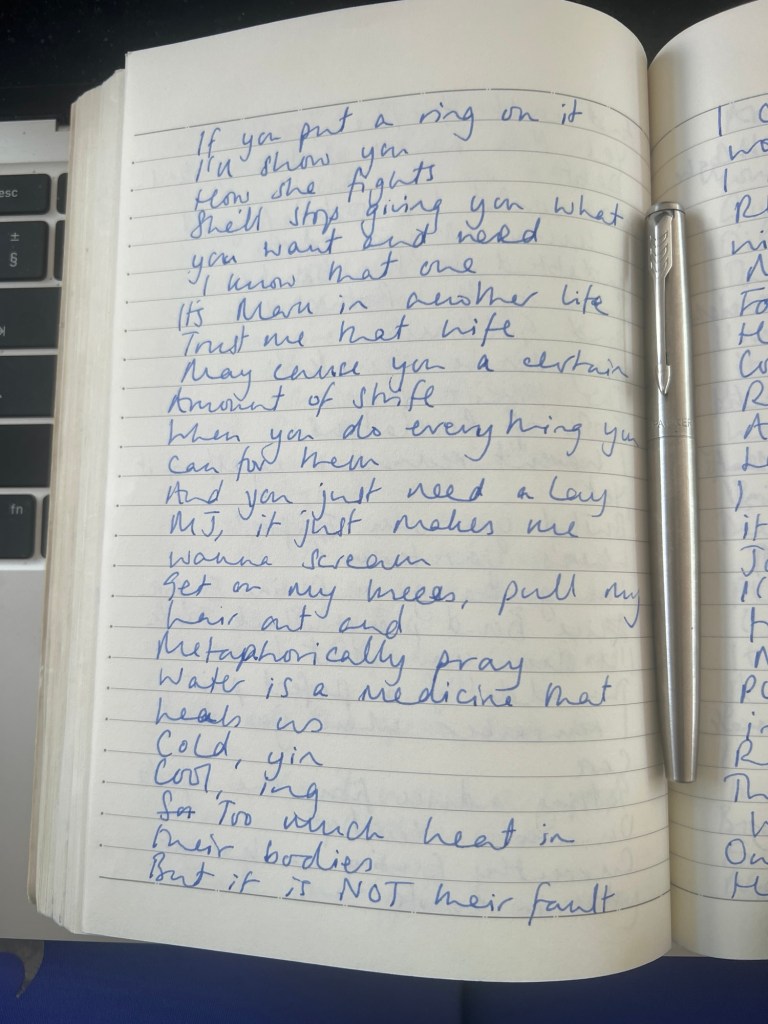 If you put a ring on it
I'll show you
How she fights
She'll stop giving you what
you want and need
I know that one
It's Mark in another life
Trust me that wife
May cause you a certain
Amount of strife
When you do everything you
can for them
And you just need a lay
MJ, it just makes me
wanna scream
Get on my knees, pull my
hair out and
Metaphorically pray
Water is a medicine that
heals us
Cold, yin
Cool, ing
Too much heat in
their bodies
But it is NOT their fault
esc
±
§
fn